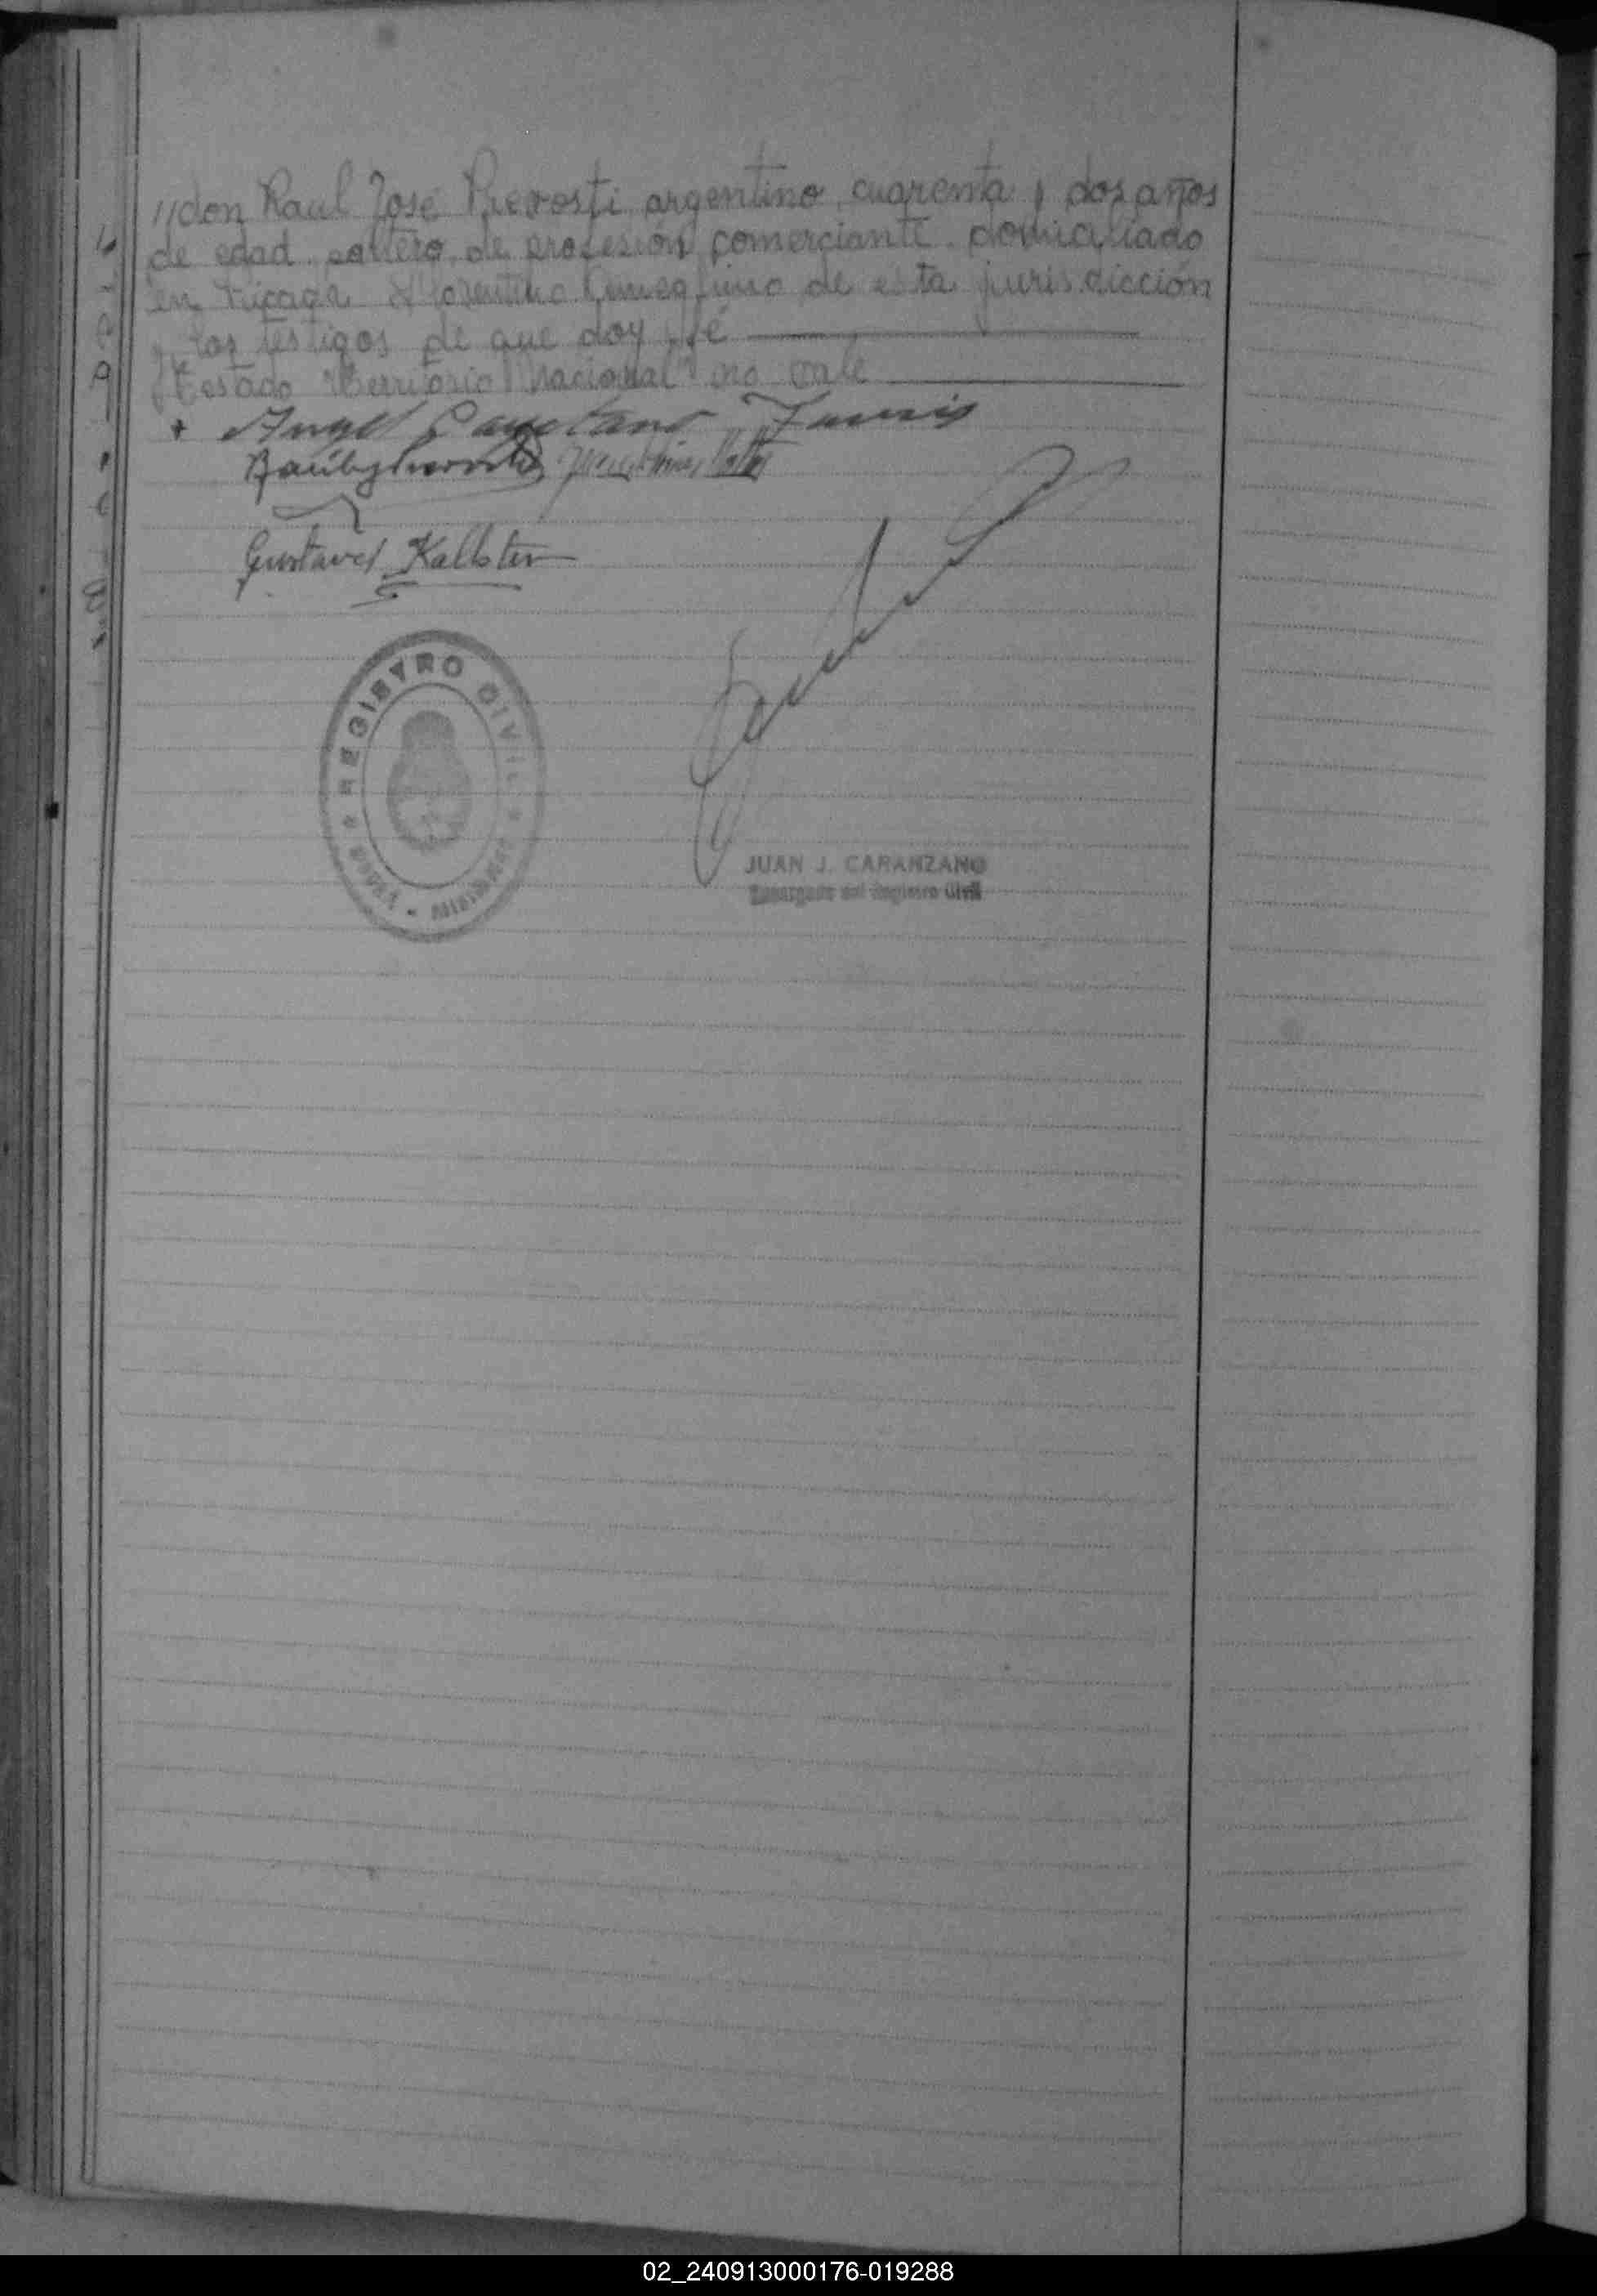 //don Raul José Prevosti argentino, cuarenta y dos años
de edad, soltero, de profesión comerciante, domiciliado
en Picada Florentino Ameghino de esta jurisdicción
y los testigos de que doy fé
Testado "Territorio Nacional" no vale
+ Angel Cayetano
Gustavo Kallsten
REGISTRO CIVIL
MISIONES
JUAN J. CARANZANO
Encargado del Registro Civil
02_240913000176-019288